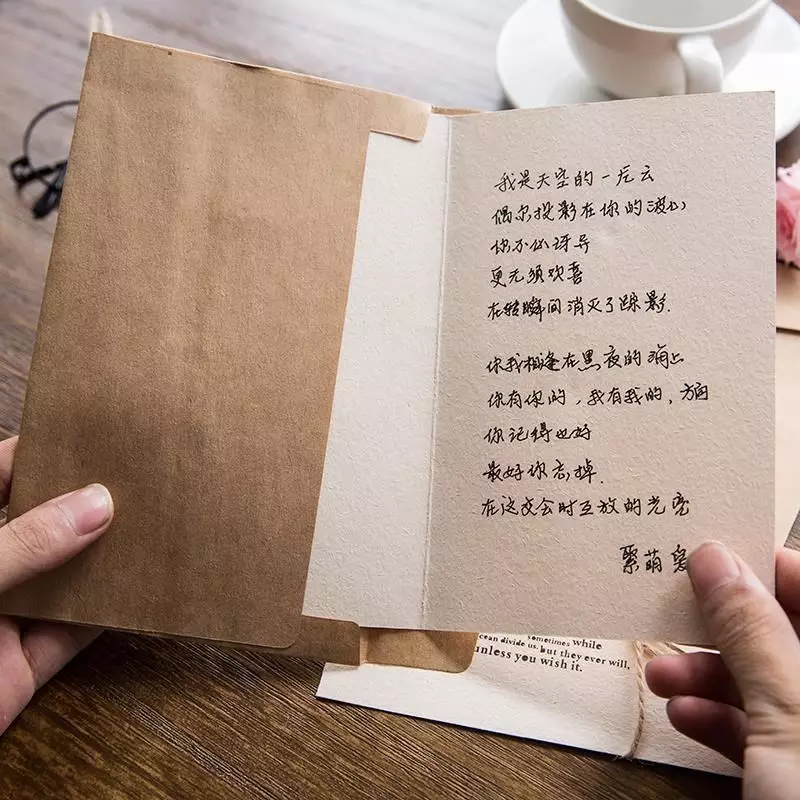 我是天空的一片云
偶尔投影在你的波心
你不必讶异
更无须欢喜
在转瞬间消灭了踪影.
你我相逢在黑夜的海上
你有你的，我有我的，方向
你记得也好
最好你忘掉.
在这交会时互放的光亮
聚萌
sometimes while
divide us. but they ever will,
unless you wish it.